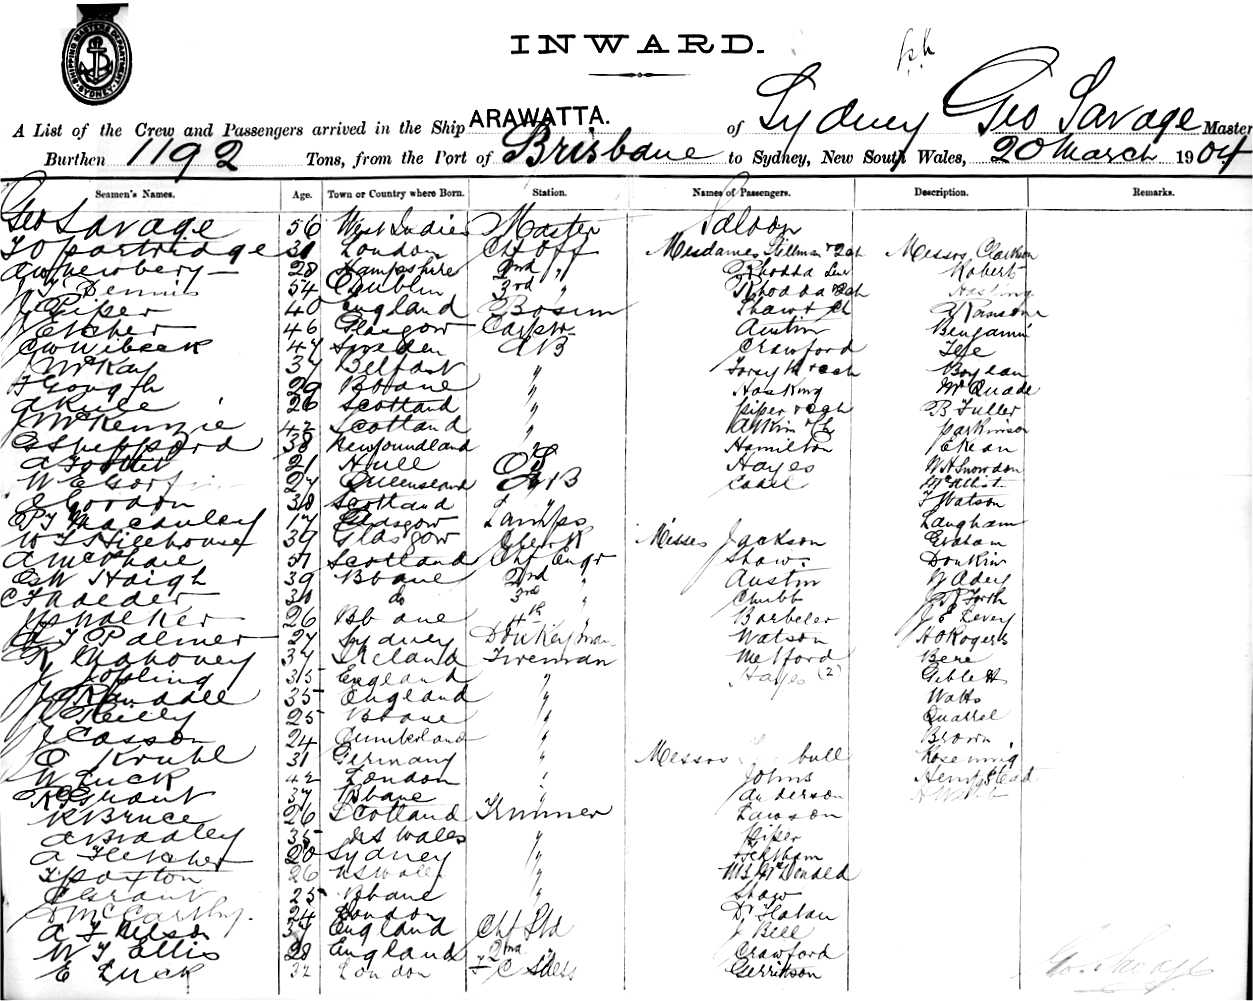 SHIPPING MASTER'S DEPARTMENT SYDNEY
INWARD.
A List of the Crew and Passengers arrived in the Ship ARAWATTA. of Sydney Geo Savage Master
Burthen 1192 Tons, from the Port of Brisbane to Sydney, New South Wales, 20 March 1904
Seamen's Names. Age. Town or Country where Born. Station. Names of Passengers. Description. Remarks.
Geo Savage 56 West Indies Master Saloon
T O Partridge 31 London Chf Off Mesdames Stillman & 2ch Messrs Clarkson
A W Newbery 28 Hampshire 2nd " Rhodda Robert
Dennis 54 Dublin 3rd " Rhodda & ch
Piper 40 England Bosun Shaw & Ch Ransom
W Fletcher 46 Glasgow Carptr Austin Benjamin
C W Wibeck 47 Sweden AB Crawford
McKay 37 Belfast " Forsyth & ch Boylan
F Gough 29 Bbane " Hosking McQuade
A Rule 26 Scotland " Piper & ch B Fuller
McKenzie 42 Scotland " Parkinson
G Sheppard 38 Newfoundland Hamilton
A Foster 21 Hull OS Hayes W H Snowdon
W E 27 Queensland AB
Gordon 38 Scotland " T Watson
P J Macauley 17 Glasgow Lamps Langham
W J Hillhouse 39 Glasgow Clerk Misses Jackson Graham
A McPhail 51 Scotland Chf Engr Shaw Donkin
G W Haigh 39 Bbane 2nd " Austin
C F 31 do 3rd " Chubb Forth
J Walker 26 Bbane 4th Barbeler J E Levey
A J Palmer 27 Sydney Donkeyman Watson H O Rogers
Mahoney 37 Ireland Fireman Melford Bere
Jopling 35 England " Hayes (2) Giblett
Randall 35 England " Watts
Reilly 25 Bbane " Quarrel
J Casson 24 Cumberland " Brown
O Kruhl 31 Germany " Messrs bull
W Luck 42 London " Johns
Grant 37 Bbane " Anderson
R Bruce 26 Scotland Trimmer Lawson
A Bradley 35 N S Wales " Piper
A Fletcher 20 Sydney "
T Paxton 26 N S Wales " McDonald
C Grant 25 Bbane " Shaw
D McCarthy. 24 London "
A F Nelson 37 England Chf Std J Bell
W J Ellis 28 England 2nd " Crawford
E Luck 32 London Gerrikson
Geo Savage